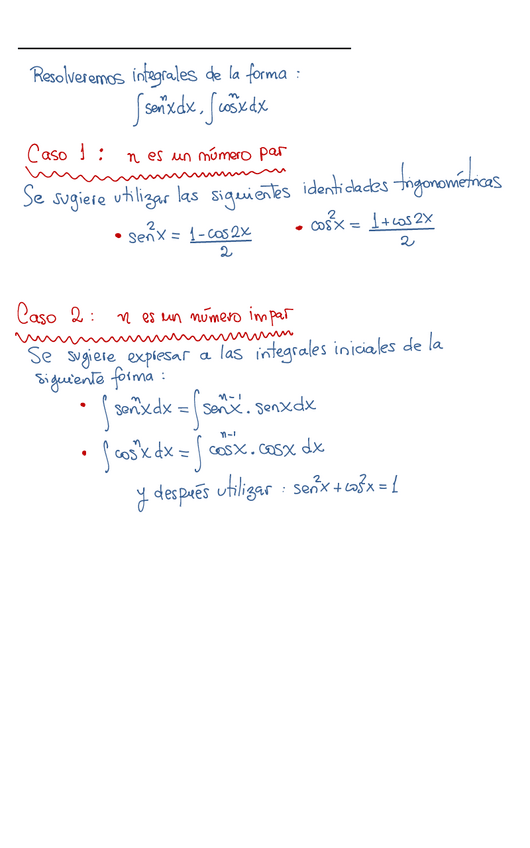 Resolveremos integrales de la forma :
∫senⁿx dx , ∫cosⁿx dx
Caso 1 : n es un número par
Se sugiere utilizar las siguientes identidades trigonométricas
• sen²x = (1-cos2x)/2 • cos²x = (1+cos2x)/2
Caso 2 : n es un número impar
Se sugiere expresar a las integrales iniciales de la
siguiente forma :
• ∫senⁿx dx = ∫senⁿ⁻¹x . senx dx
• ∫cosⁿx dx = ∫cosⁿ⁻¹x . cosx dx
y después utilizar : sen²x + cos²x = 1